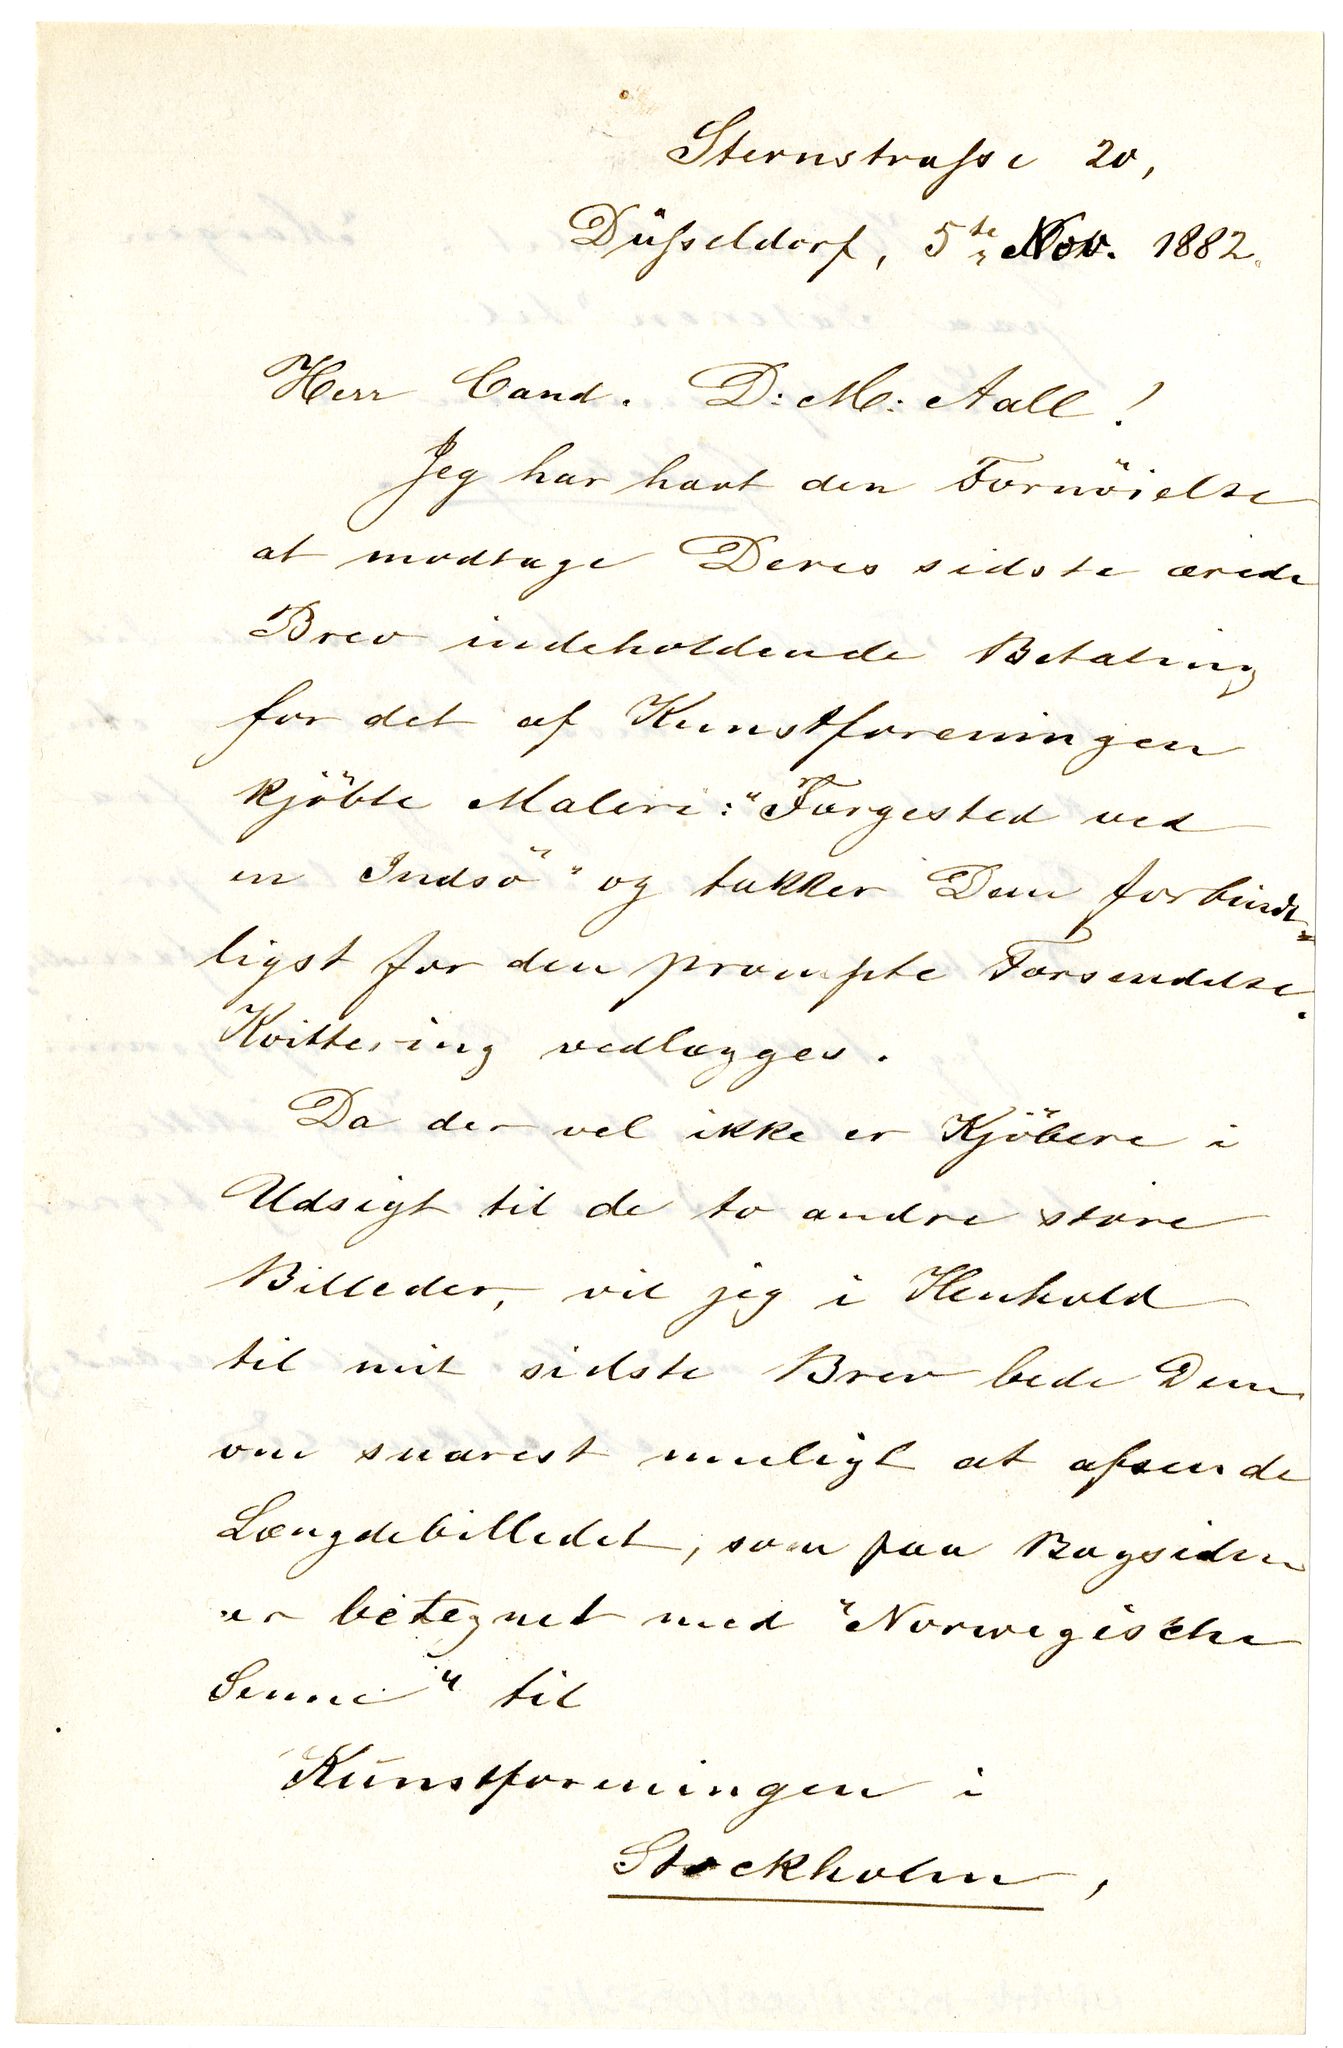 Sternstrasse 20,
Düsseldorf, 5te Nov. 1882.
Herr Cand. D: M: Aall!
Jeg har havt den Fornöielse
at modtage Deres sidste ærede
Brev indeholdende Betaling
for det af Kunstforeningen
kjöbte Maleri: "Færgested ved
en Indsö" og takker Dem forbindt=
ligst for den prompte Forsendelse.
Kvittering vedlægges.
Da der vel ikke er Kjöbere i
Udsigt til de to andre störe
Billeder, vil jeg i Henhold
til mit sidste Brev bede Dem
om snarest muligt at afsende
Længdebilledet, som paa Bagsiden
er betegnet med "Norwegische
Senne" til
Kunstforeningen i
Stockholm,